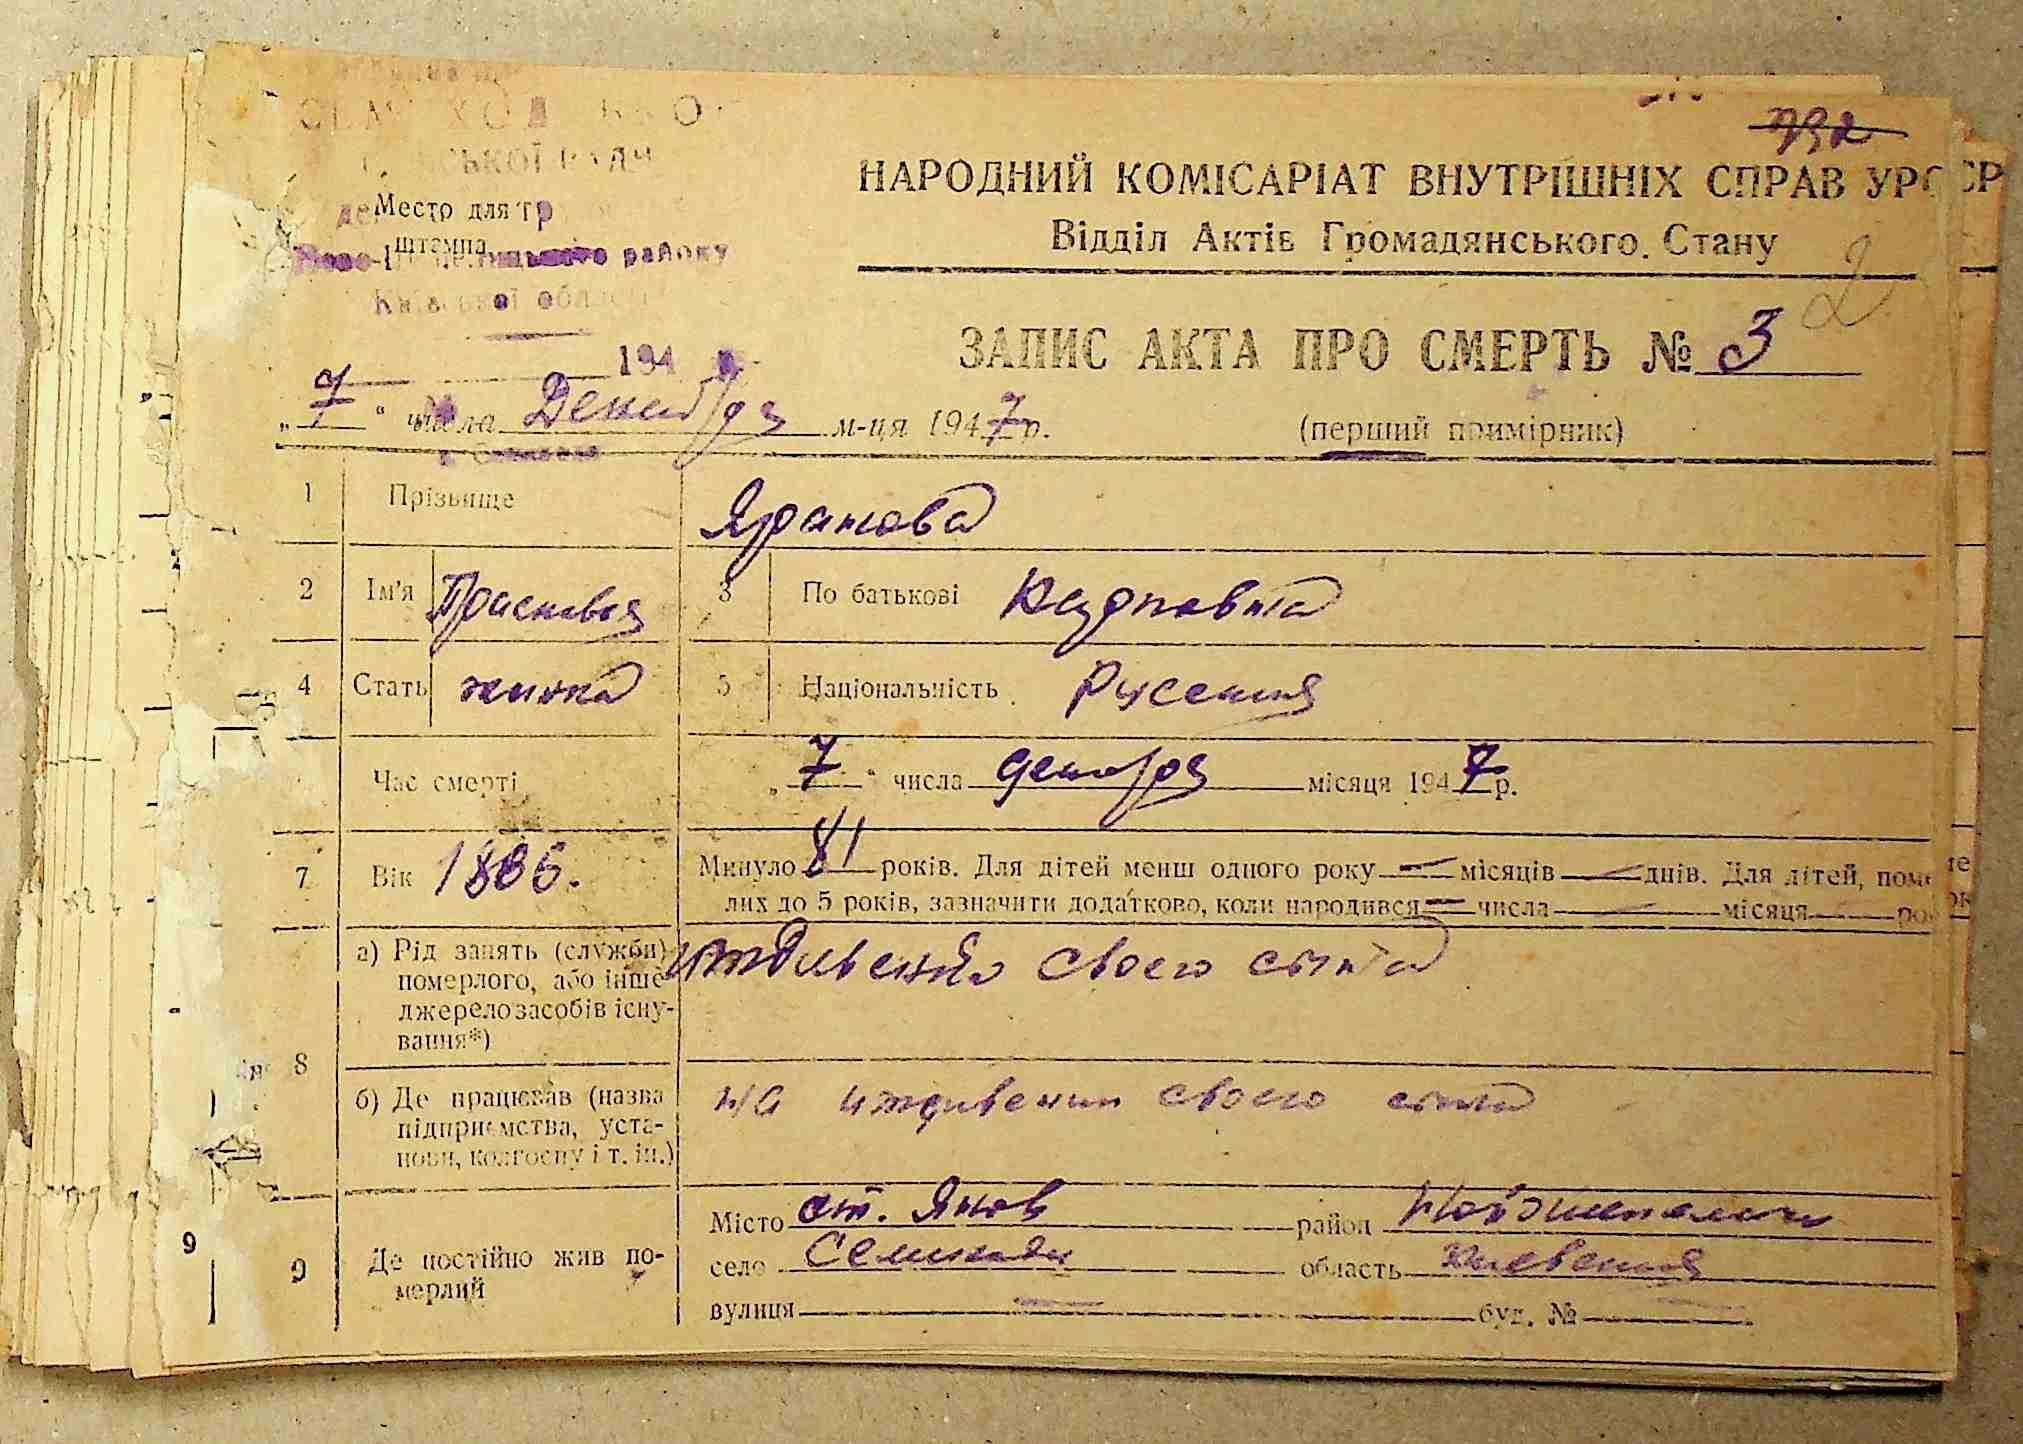 792
НАРОДНИЙ КОМІСАРІАТ ВНУТРІШНІХ СПРАВ УРСР
Відділ Актів Громадянського Стану
Место для
штампа
району
Київської області
194
ЗАПИС АКТА ПРО СМЕРТЬ № 3
2
„7“ числа Декабря м-ця 1947 р.
(перший примірник)
1 Прізвище
2 Ім'я Прасковья 3 По батькові
4 Стать жинка 5 Національність Русская
Час смерті „7“ числа декабря місяця 1947 р.
7 Вік 1886. Минуло 81 років. Для дітей менш одного року — місяців — днів. Для дітей, поме
лих до 5 років, зазначити додатково, коли народився — числа — місяця — ро
8 а) Рід занять (службн) иждивенка своего сына
померлого, або інше
джерело засобів існу-
вання*)
б) Де працював (назва на иждивении своего сына
підприємства, уста-
нови, колгоспу і т. ін.)
9 9 Де постійно жив по-
мерлий
Місто ст. Янов район
село Семиходы область Киевская
вулиця — буд. № —